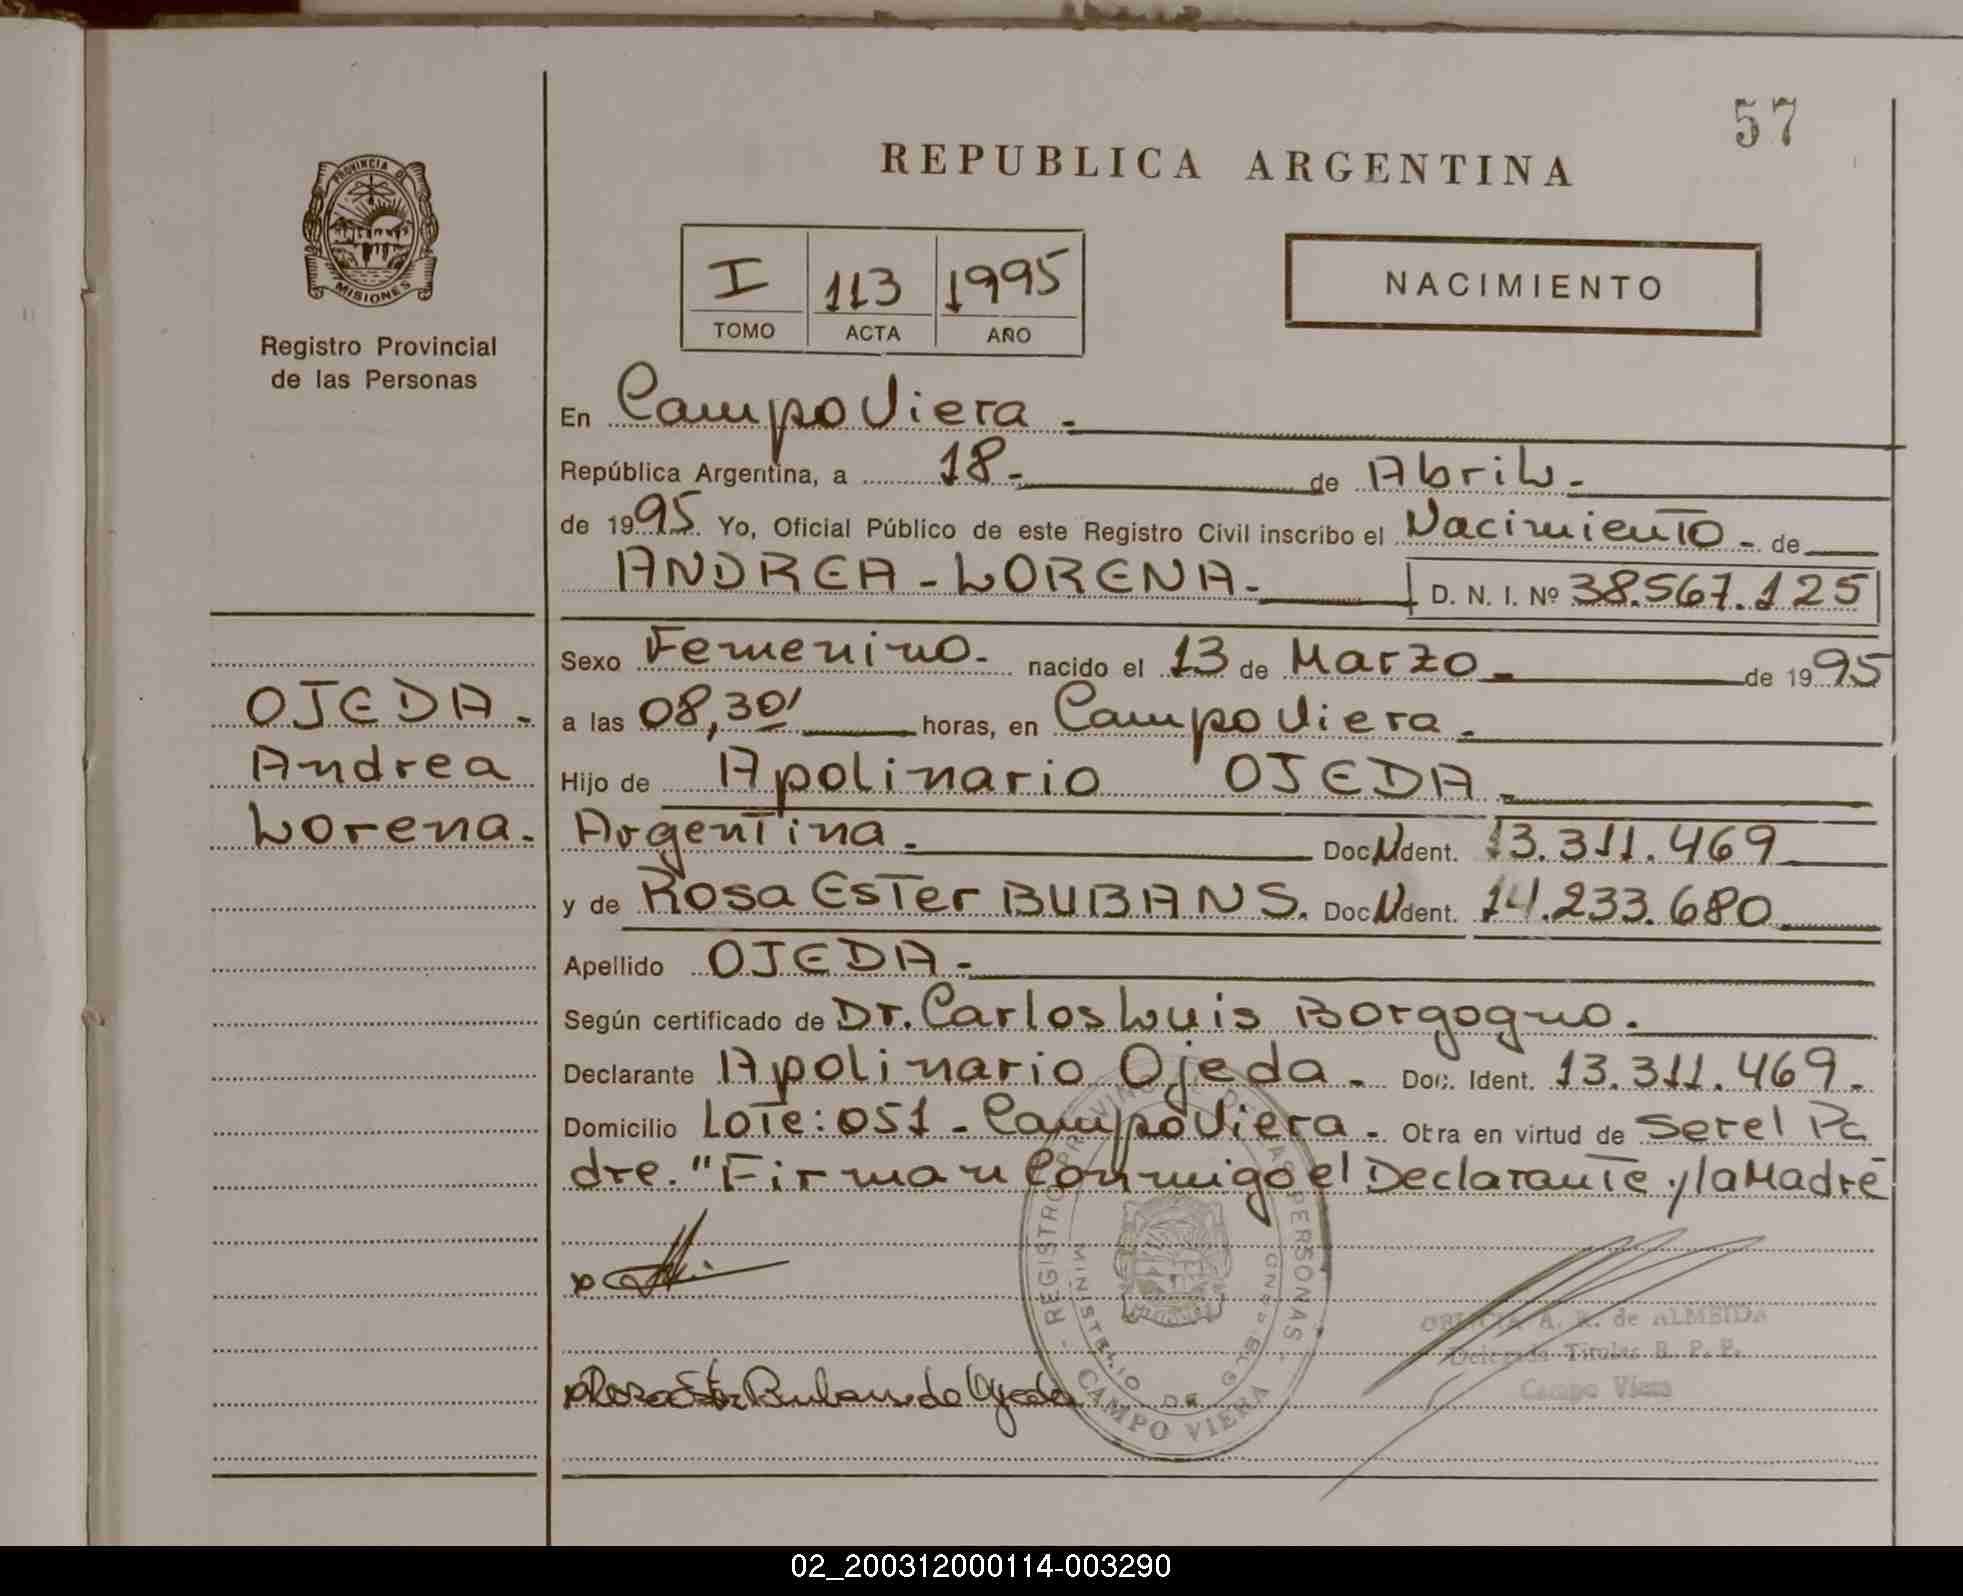 57
REPUBLICA ARGENTINA
PROVINCIA DE
MISIONES
Registro Provincial
de las Personas
I 113 1995
TOMO ACTA AÑO
NACIMIENTO
En Campo Viera.-
República Argentina, a 18.- de Abril.-
de 1995. Yo, Oficial Público de este Registro Civil inscribo el Nacimiento.- de
ANDREA-LORENA.- D. N. I. Nº 38.567.125
Sexo Femenino.- nacido el 13 de Marzo.- de 1995
a las 08,30' horas, en Campo Viera.-
Hijo de Apolinario OJEDA.-
Argentina.- Doc. N Ident. 13.311.469
y de Rosa Ester BUBANS. Doc. N Ident. 14.233.680
Apellido OJEDA.-
Según certificado de Dr. Carlos Luis Borgogno.
Declarante Apolinario Ojeda.- Doc. Ident. 13.311.469.-
Domicilio Lote: 051 - Campo Viera.- Otra en virtud de ser el Pa
dre. "Firman Conmigo el Declarante y la Madre
OJEDA.-
Andrea
Lorena.-
Rosa Ester Bubans de Ojeda
REGISTRO PROVINCIAL DE LAS PERSONAS
MINISTERIO DE GOBIERNO
CAMPO VIERA
A. R. de ALMEIDA
Delegada Titular R. P. P.
Campo Viera
02_200312000114-003290